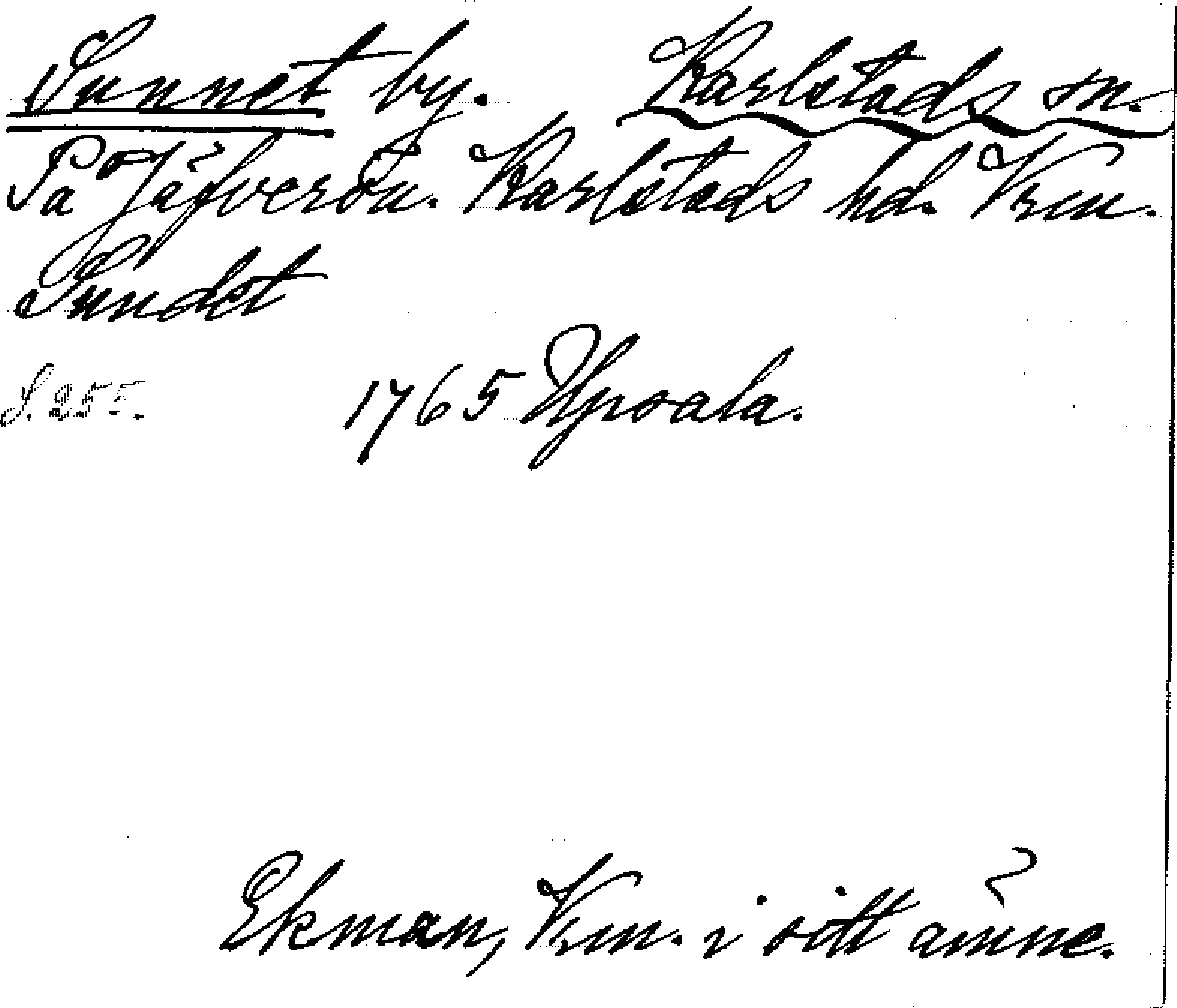 Sunnet by. Karlstads sn.
På Jäfverön. Karlstads hd. Vrm.
Sundet
S. 255. 1765 Upsala.
Ekman, Vrm. i sitt ämne.